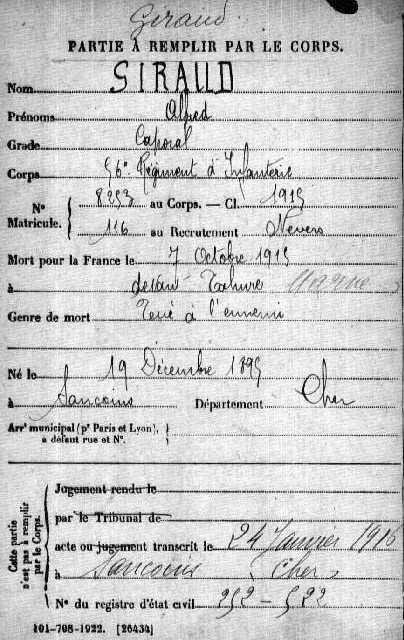 Giraud
PARTIE À REMPLIR PAR LE CORPS.
Nom GIRAUD
Prénoms Alfred
Grade Caporal
Corps 56e Régiment d'Infanterie
N° Matricule. { 8253 au Corps. — Cl. 1915
116 au Recrutement Nevers
Mort pour la France le 7 Octobre 1915
à devant Tahure Marne
Genre de mort Tué à l'ennemi
Né le 19 Décembre 1895
à Sancoins Département Cher
Arrt municipal (pr Paris et Lyon), à défaut rue et N°. }
Cette partie n'est pas à remplir par le Corps.
Jugement rendu le
par le Tribunal de
acte ou jugement transcrit le 24 Janvier 1916
à Sancoins (Cher)
N° du registre d'état civil
101-708-1922. [26434]